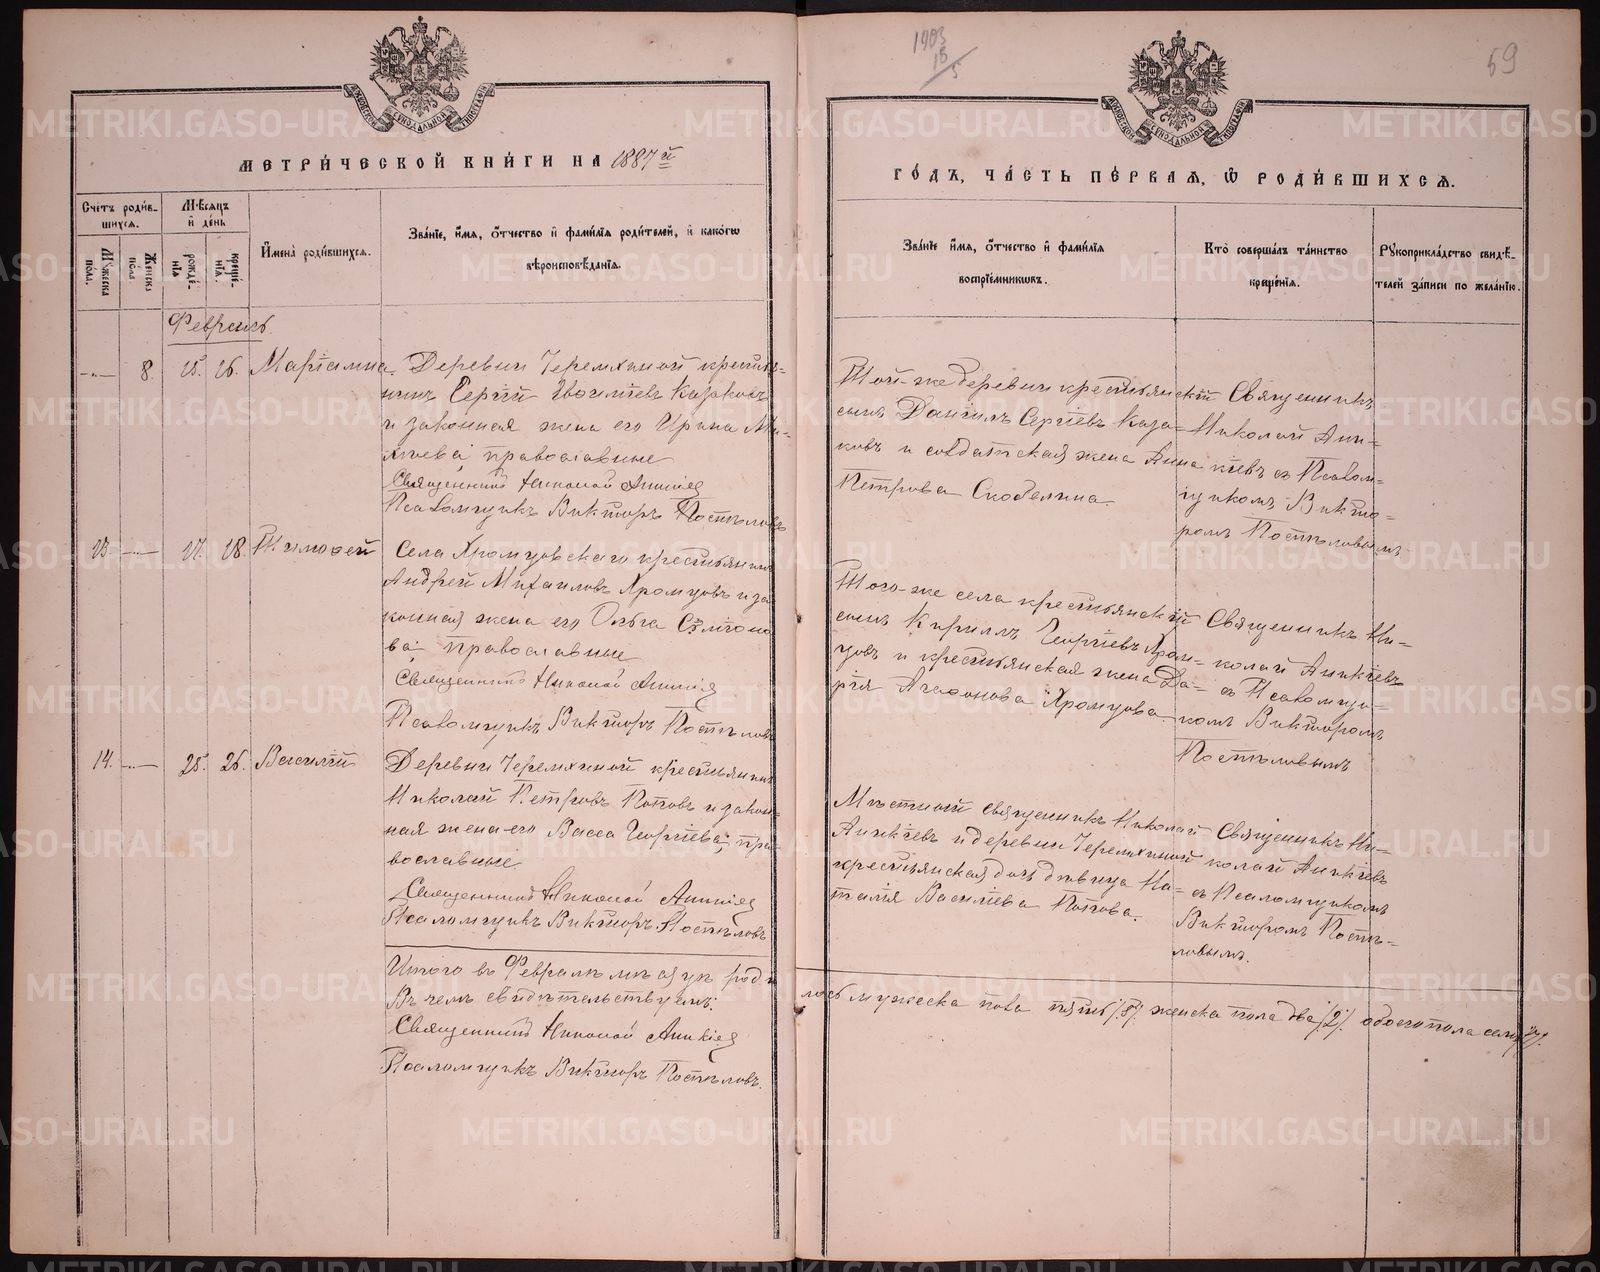 1903
15
5
59
ДУХОВСКОЙ СИНОДАЛЬНОЙ ТИПОГРАФІИ
МЕТРИ́ЧЕСКОЙ КНИ́ГИ НА 1887й
ГО́ДЪ, ЧА́СТЬ ПЕ́РВАЯ, Ѡ РОДИ́ВШИХСЯ.
Сче́тъ роди́в-
шихся.
Мѣ́сяцъ
и҆ де́нь
Му́жеска
по́ла.
Же́нска
по́ла
рожде́-
нія
креще́-
нія.
И҆мена̀ роди́вшихся.
Зва́ніе, и҆́мя, ѻ҆́тчество и҆ фами́лія роди́телей, и҆ како́гѡ
вѣроисповѣ́данія.
Зва́ніе и҆́мя, ѻ҆́тчество и҆ фами́лія
воспріе́мникѡвъ.
Кто̀ соверша́лъ та́инство
креще́нія.
Рукоприкла́дство свидѣ́-
телей за́писи по жела́нію.
Февраль.
8. 15. 16. Маріамна
Деревни Черемхиной крестья-
нинъ Сергій Казаковъ
и законная жена его Ирина Ми-
хѣева, православные
Священникъ Николай Аникіев
Псаломщикъ Викторъ Постъловъ
Той-же деревни крестьянскій
сынъ Даніилъ Сергіевъ Каза-
ковъ и солдатская жена Анна
Петрова Скобелина.
Священникъ
Николай Ани-
кіевъ съ Псалом-
щикомъ Викто-
ромъ Поспѣловымъ
13. 17. 18. Тимофей
Села Хромцовскаго крестьянинъ
Андрей Михаиловъ Хромцовъ и за
конная жена его Ольга Семіоно
ва православные
Священникъ Николай Аникіев
Псаломщикъ Викторъ Поспѣловъ
Того-же села крестьянскій
сынъ Кириллъ Георгіевъ Хром-
цовъ и крестьянская жена Да-
рія Агафонова Хромцова
Священникъ Ни-
колай Аникіевъ
съ Псаломщи-
комъ Викторомъ
Поспѣловымъ
14. 25. 26. Василій
Деревни Черемхиной крестьянинъ
Николай Петровъ Поповъ и закон-
ная жена его Васса Георгіева, пра-
вославные
Священникъ Николай Аникіев
Псаломщикъ Викторъ Поспѣловъ
Мѣстный священникъ Николай
Аникіевъ и деревни Черемхиной
крестьянская дочь дѣвица На-
талія Василіева Попова.
Священникъ Ни-
колай Аникіевъ
съ Псаломщикомъ
Викторомъ Поспѣ-
ловымъ.
Итого въ Февралѣ мѣсяцѣ роди
лось мужеска пола пять /5/. женска пола два /2/. обоего пола семь /7/.
Въ чемъ свидѣтельствуемъ:
Священникъ Николай Аникіев
Псаломщикъ Викторъ Поспѣловъ.
METRIKI.GASO-URAL.RU